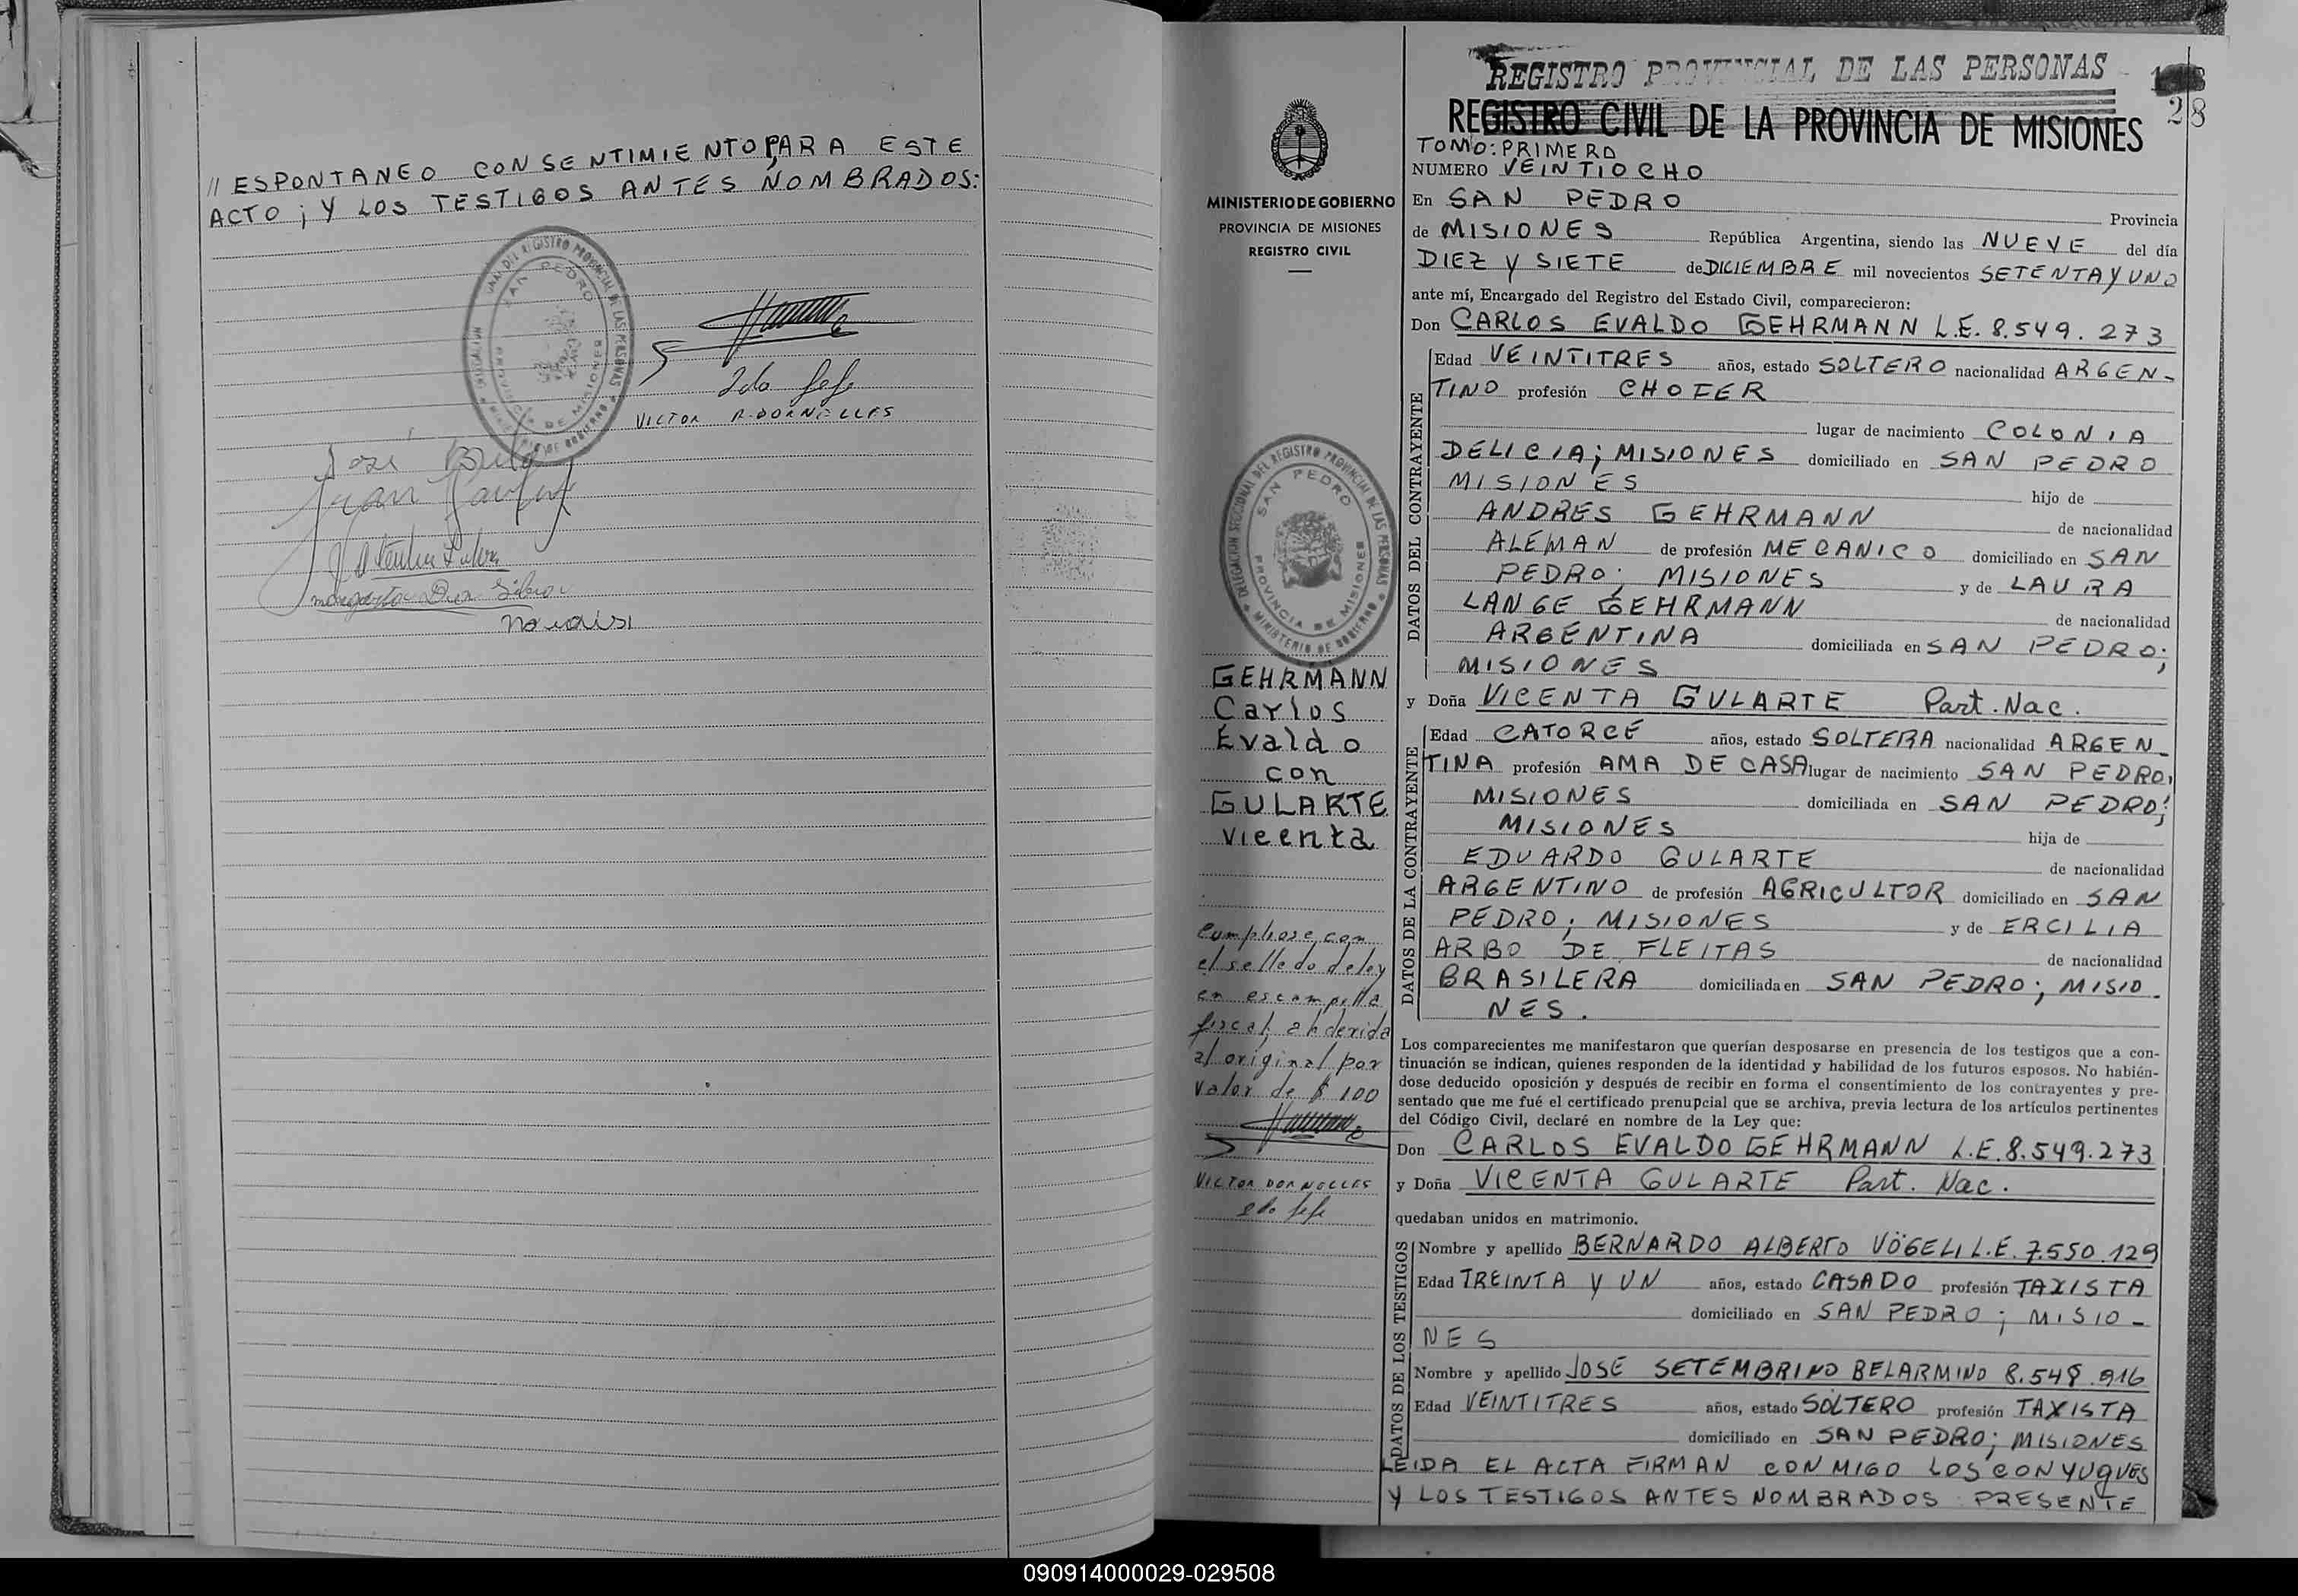 // ESPONTANEO CONSENTIMIENTO PARA ESTE
ACTO; Y LOS TESTIGOS ANTES NOMBRADOS:
SAN PEDRO
PROVINCIA DE MISIONES
2do Jefe
VICTOR R. DORNELLES
José
Juan
REGISTRO PROVINCIAL DE LAS PERSONAS
REGISTRO CIVIL DE LA PROVINCIA DE MISIONES
28
MINISTERIO DE GOBIERNO
PROVINCIA DE MISIONES
REGISTRO CIVIL
DELEGACION SECCIONAL DEL REGISTRO PROVINCIAL DE LAS PERSONAS
MINISTERIO DE GOBIERNO
SAN PEDRO
PROVINCIA DE MISIONES
GEHRMANN
Carlos
Evaldo
con
GULARTE
Vicenta
Cumpliose con
el sellado de ley
en escampilla
fiscal, ahderida
al original por
valor de $ 100
VICTOR DORNELLES
2do Jefe
TOMO: PRIMERO
NUMERO VEINTIOCHO
En SAN PEDRO Provincia
de MISIONES República Argentina, siendo las NUEVE del día
DIEZ Y SIETE de DICIEMBRE mil novecientos SETENTA Y UNO
ante mí, Encargado del Registro del Estado Civil, comparecieron:
Don CARLOS EVALDO GEHRMANN L.E. 8.549.273
DATOS DEL CONTRAYENTE
Edad VEINTITRES años, estado SOLTERO nacionalidad ARGEN-
TINO profesión CHOFER
lugar de nacimiento COLONIA
DELICIA; MISIONES domiciliado en SAN PEDRO
MISIONES hijo de
ANDRES GEHRMANN de nacionalidad
ALEMAN de profesión MECANICO domiciliado en SAN
PEDRO; MISIONES y de LAURA
LANGE GEHRMANN de nacionalidad
ARGENTINA domiciliada en SAN PEDRO;
MISIONES
y Doña VICENTA GULARTE Part. Nac.
DATOS DE LA CONTRAYENTE
Edad CATORCE años, estado SOLTERA nacionalidad ARGEN-
TINA profesión AMA DE CASA lugar de nacimiento SAN PEDRO,
MISIONES domiciliada en SAN PEDRO;
MISIONES hija de
EDUARDO GULARTE de nacionalidad
ARGENTINO de profesión AGRICULTOR domiciliado en SAN
PEDRO; MISIONES y de ERCILIA
ARBO DE FLEITAS de nacionalidad
BRASILERA domiciliada en SAN PEDRO; MISIO-
NES.
Los comparecientes me manifestaron que querían desposarse en presencia de los testigos que a con-
tinuación se indican, quienes responden de la identidad y habilidad de los futuros esposos. No habién-
dose deducido oposición y después de recibir en forma el consentimiento de los contrayentes y pre-
sentado que me fué el certificado prenupcial que se archiva, previa lectura de los artículos pertinentes
del Código Civil, declaré en nombre de la Ley que:
Don CARLOS EVALDO GEHRMANN L.E. 8.549.273
y Doña VICENTA GULARTE Part. Nac.
quedaban unidos en matrimonio.
DATOS DE LOS TESTIGOS
Nombre y apellido BERNARDO ALBERTO VÖGELI L.E. 7.550.129
Edad TREINTA Y UN años, estado CASADO profesión TAXISTA
domiciliado en SAN PEDRO; MISIO-
NES
Nombre y apellido JOSE SETEMBRINO BELARMINO 8.548.916
Edad VEINTITRES años, estado SOLTERO profesión TAXISTA
domiciliado en SAN PEDRO; MISIONES
LEIDA EL ACTA FIRMAN CONMIGO LOS CONYUGUES
Y LOS TESTIGOS ANTES NOMBRADOS PRESENTE
090914000029-029508